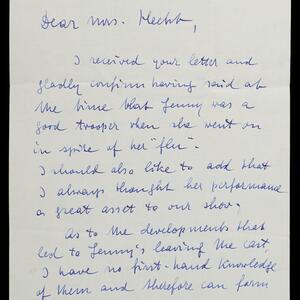 Dear Mrs. Hecht,
I received your letter and
gladly confirm having said at
the time that Jenny was a
good trooper when she went on
in spite of her "flu".
I should also like to add that
I always thought her performance
a great asset to our show.
As to the developments that
led to Jenny's leaving the cast
I have no first-hand knowledge
of them and therefore can form